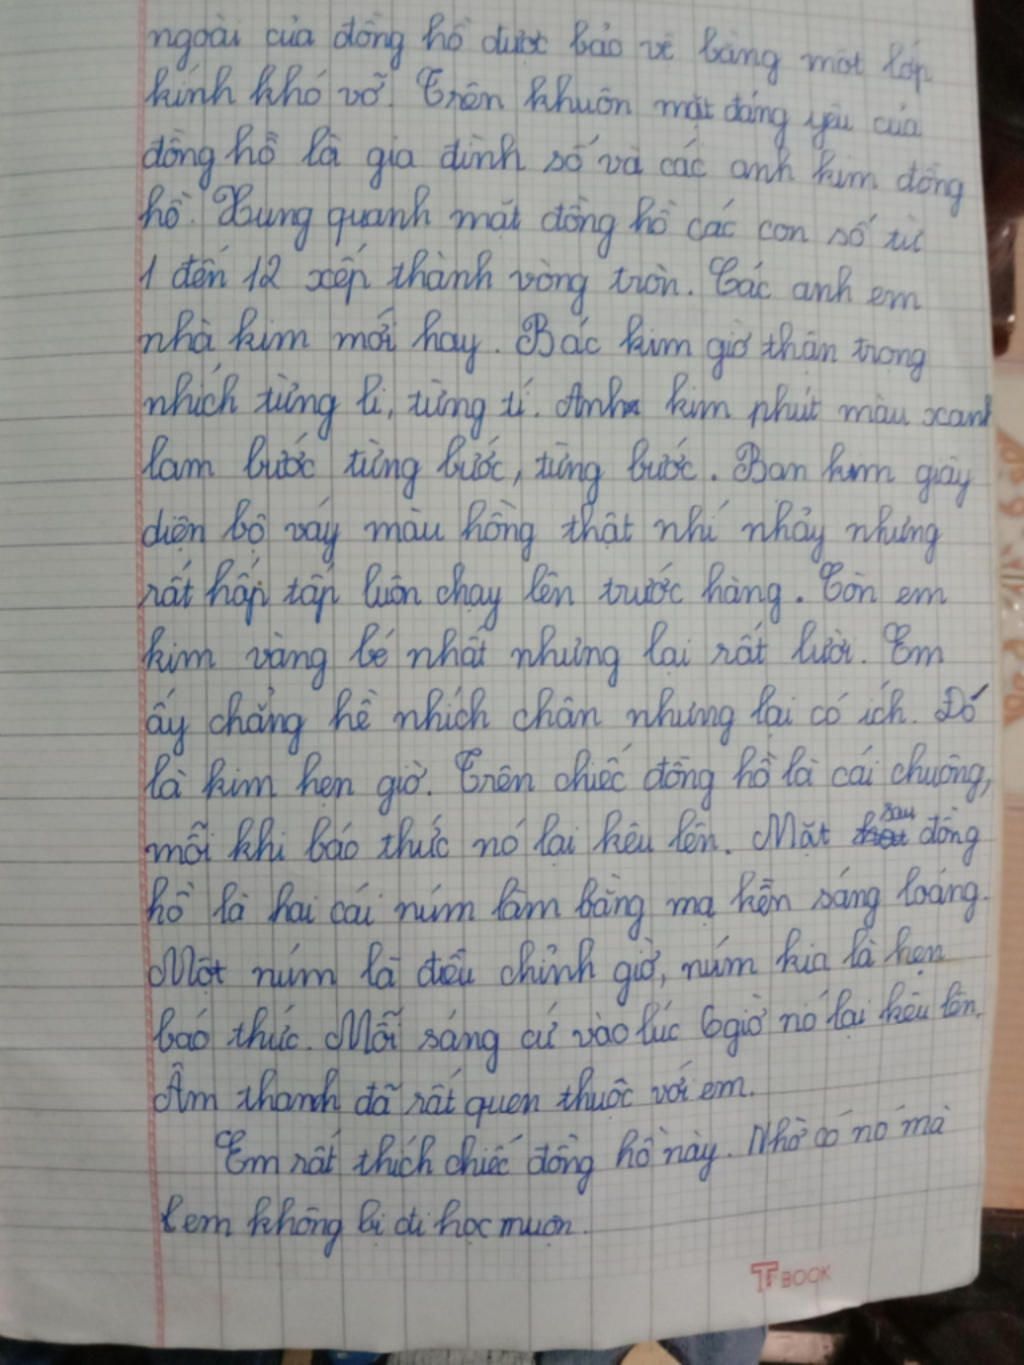 ngoài của đồng hồ được bảo vệ bằng một lớp
kính khó vỡ. Trên khuôn mặt đáng yêu của
đồng hồ là gia đình số và các anh kim đồng
hồ. Xung quanh mặt đồng hồ các con số từ
1 đến 12 xếp thành vòng tròn. Các anh em
nhà kim mới hay. Bác kim giờ thận trong
nhích từng li, từng tí. Anh kim phút màu xanh
lam bước từng bước, từng bước. Bạn kim giây
diện bộ váy màu hồng thật nhí nhảy nhưng
rất hấp tấp luôn chạy lên trước hàng. Còn em
kim vàng bé nhất nhưng lại rất lười. Em
ấy chẳng hề nhích chân nhưng lại có ích. Đó
là kim hẹn giờ. Trên chiếc đồng hồ là cái chuông,
mỗi khi báo thức nó lại kêu lên. Mặt sau đồng
hồ là hai cái núm làm bằng mạ kền sáng loáng.
Một núm là điều chỉnh giờ, núm kia là hẹn
báo thức. Mỗi sáng cứ vào lúc 6 giờ nó lại kêu lên.
Âm thanh đã rất quen thuộc với em.
Em rất thích chiếc đồng hồ này. Nhờ có nó mà
em không bị đi học muộn.
TF BOOK